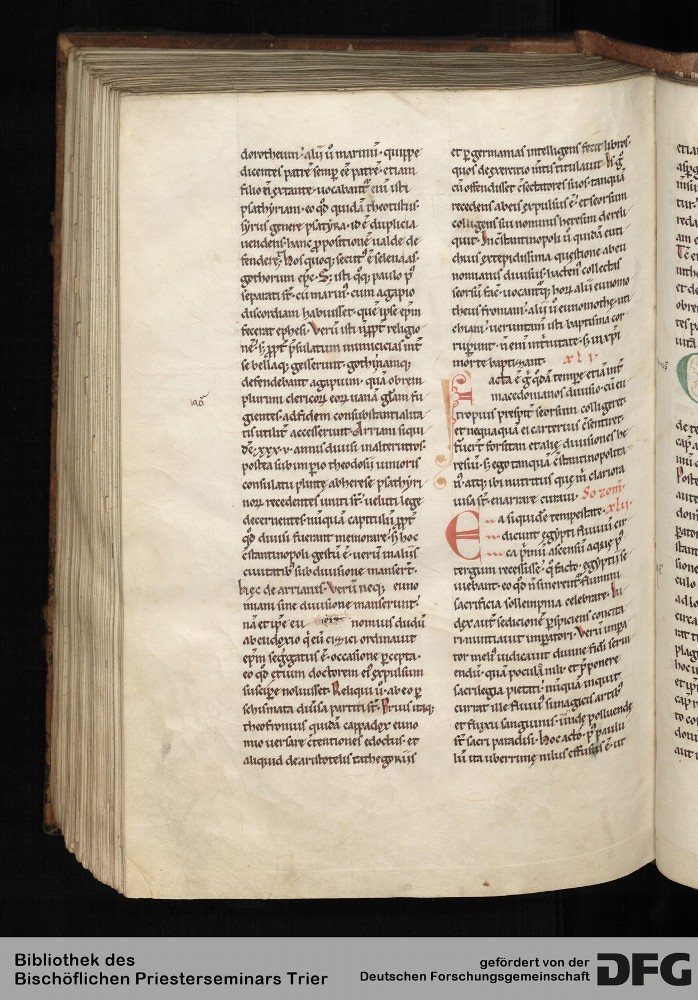 dorotheum. alij ũ marinũ. quippe
dicentes patrẽ semp ẽẽ patrẽ. etiam
filio ñ extante. uocabant̃ eni isti
psathyriani. eo qđ quidã theotistus
syrus genere psatyra. id ẽ duplicia
uendens. hanc ꝓpositionẽ ualde de
fenderet. hos quoq; secut᾽ ẽ selenas.
gothorum ep̃c. S; isti qq; paulo p᾽
separati s̃t. cũ marin᾽ cum agapio
discordiam habuisset. quẽ ipse ep̃m
fecerat ephesi. Verũ isti
se bella q; gesserunt. gothisq;
defendebant agapium. quã obrem
plurimi clericoꝝ eoꝝ uanã gl̃am fu
gientes. ad fidem consubstantialita
tis utilit̃ accesserunt. Arriani siqui
dẽ. xxx.v. annis diuisi inalterutros.
postea sub imperio theodosij iunioris
consulatu plinte abherese psathyri
noꝝ recedentes uniti s̃t. ueluti lege
decernentes. nũquã capitulũ ꝓpt̃
qđ diuisi fuerant memorare. s; hoc
c̃stantinopoli gestũ ẽ. uerũ in alijs
ciuitatib᾽ sub diuisione manser̃t.
hẹc de arrianis. Verũ neq; euno
miani sine diuisione manserunt.
nã et ip̃e eunomius dudũ
ab eudoxio q̃ eũ cizici ordinauit
ep̃m seg̃gatus ẽ. occasione p̱cepta.
eo qđ etium doctorem ei᾽ expulsum
suscip̱e noluisset. Reliqui ũ. ab eo p̱
schismata diuisa partiti s̃t. Prius itaq;
theofronius quidã cappadox euno
mio uersare c̃tentiones edoctus. et
aliquid de aristotelis cathegorijs
et p̱germanias intelligens fecit libros.
quos de exercitio m̃tis titulauit. hi᾽ g̃
cũ offendisset c̃sectatores suos. tanquã
recedens ab eis expulsus ẽ. et seorsum
colligens sui nominis heresim dereli
quit. In c̃stantinopoli ũ quidã euti
chius ex tepidissima questione ab eu
nomianis diuisus. hacten᾽ collectas
seorsũ fac̃. uocant̃q; hoꝝ alij eunomo
theusfroniani. alij ũ eunomothe. uti
chiani. ueruntam̃ isti baptisma cor
ruperunt. ñ eni intrinitate. s; in xp̃i
morte baptizant. xlj.
Facta ẽ g̃ qđã tempe. etiã int̃
macedonianos diuisio. cũ eu
tropius presbit̃ seorsum colligeret.
et nequaquã ei carterius c̃sentiret.
fuer̃t forsitan et alie diuisiones he
resiũ. s; ego tanquã c̃stantinopolita
n᾽. atq; ibi nutritus que m̃ clariora
uisa s̃t. enarrare curaui. Sozom̃. xlij.
Ea siquidẽ tempestate.
dicunt egypti fluuiũ cir
ca primũ ascensũ aque p᾽
tergum recessisse. q̃ facto. egyptij se
uiebant. eo qđ ñ sinerent᾽ flumini
sacrificia sollempnia celebrare. Iu
dex aut̃ seditionẽ p̱spiciens concita
ri. nuntiauit imp̱atori. Verũ imp̱a
tor meli᾽ iudicauit diuine fidei serui
endũ. quã poculũ nili. et p̃ponere
sacrilegia pietati. nũquã inquit
currat ille fluuius si magicis artib᾽
et fluxu sanguinis. ũnde polluendẹ
s̃t sacri paradisi. hoc acto. p᾽ paulu
lũ ita uberrimẹ nilus effusus ẽ. ut
Bibliothek des
Bischöflichen Priesterseminars Trier
gefördert von der
Deutschen Forschungsgemeinschaft
DFG